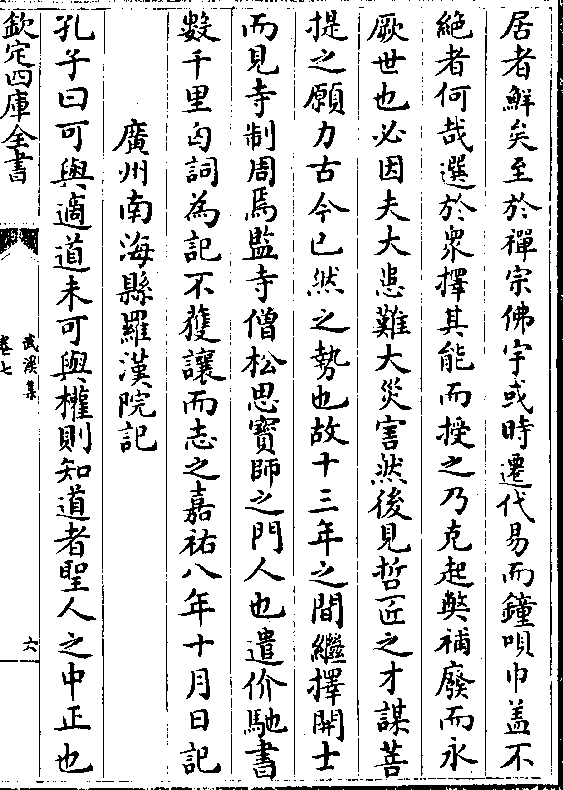 居者鮮矣至於禪宗佛宇或時遷代易而鐘唄巾盖不
絶者何哉選於衆擇其能而授之乃克起獘補廢而永
厥世也必因夫大患難大災害然後見哲匠之才謀菩
提之願力古今已然之勢也故十三年之間繼擇開士
而見寺制周焉監寺僧松思寶師之門人也遣价馳書
數千里匄詞為記不獲讓而志之嘉祐八年十月日記
廣州南海縣羅漢院記
孔子曰可與適道未可與權則知道者聖人之中正也
欽定四庫全書
武溪集
卷七
六